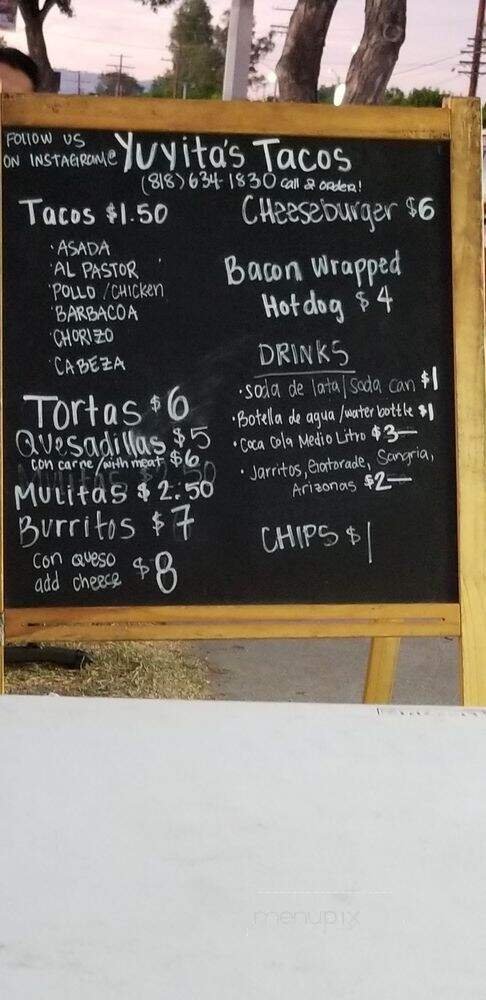 FOllOW US
ON INSTAGRAME
Yuyita's Tacos
(818) 634-1830 call 2 order!
Tacos $1.50
·ASADA
·AL PASTOR
·POLLO /CHICKEN
·BARBACOA
·CHORIZO
·CABEZA
Tortas $6
Quesadillas $5
con carne /with meat $6
Mulitas $2.50
Burritos $7
con queso
add cheese $8
CHeeseburger $6
Bacon Wrapped
Hotdog $4
DRINKS
·soda de lata/Soda can $1
·Botella de agua /water bottle $1
·Coca Cola Medio Litro $3—
·Jarritos, Gatorade, Sangria,
Arizonas $2—
CHIPS $1
menupix